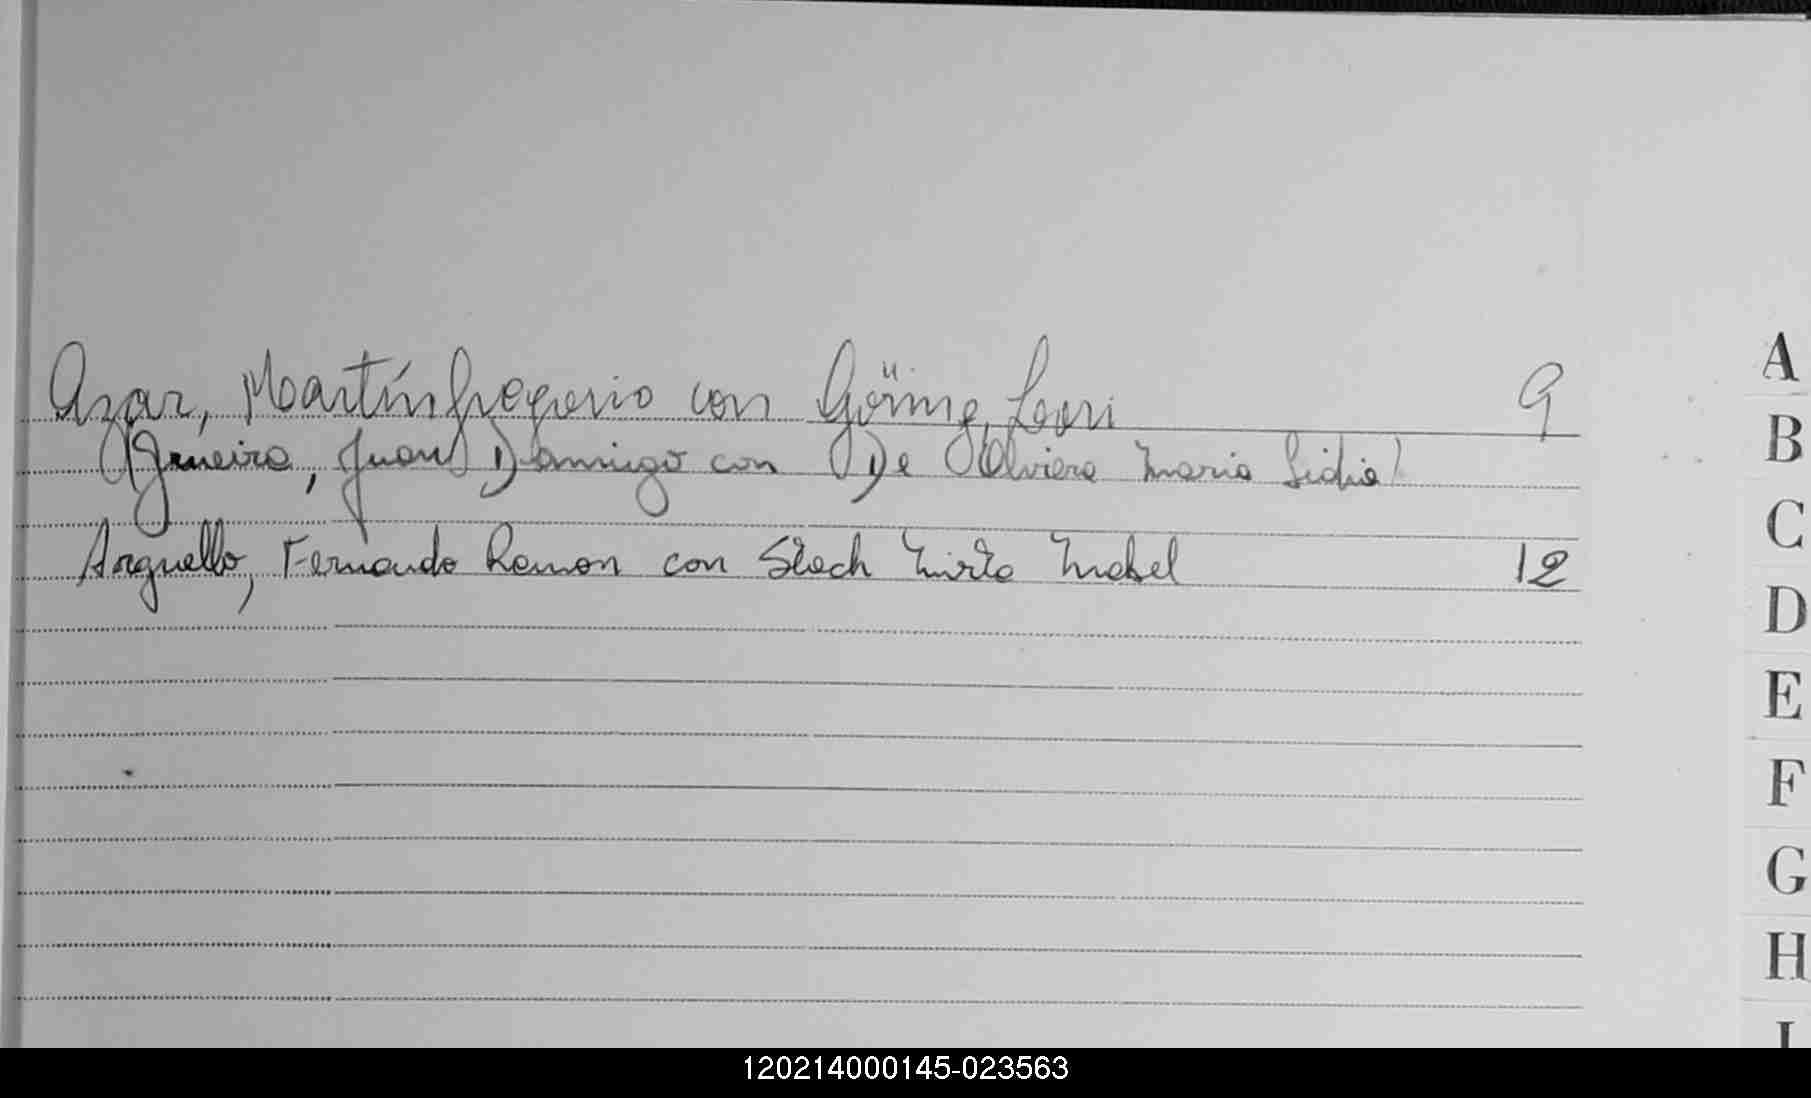 Azar, Martín Gregorio con Göring, Lori 9
(Janeiro, Juan Domingo con De Olviera Maria Lidia)
Arguello, Fernando Ramon con Stech Mirta Mabel 12
A
B
C
D
E
F
G
H
I
120214000145-023563